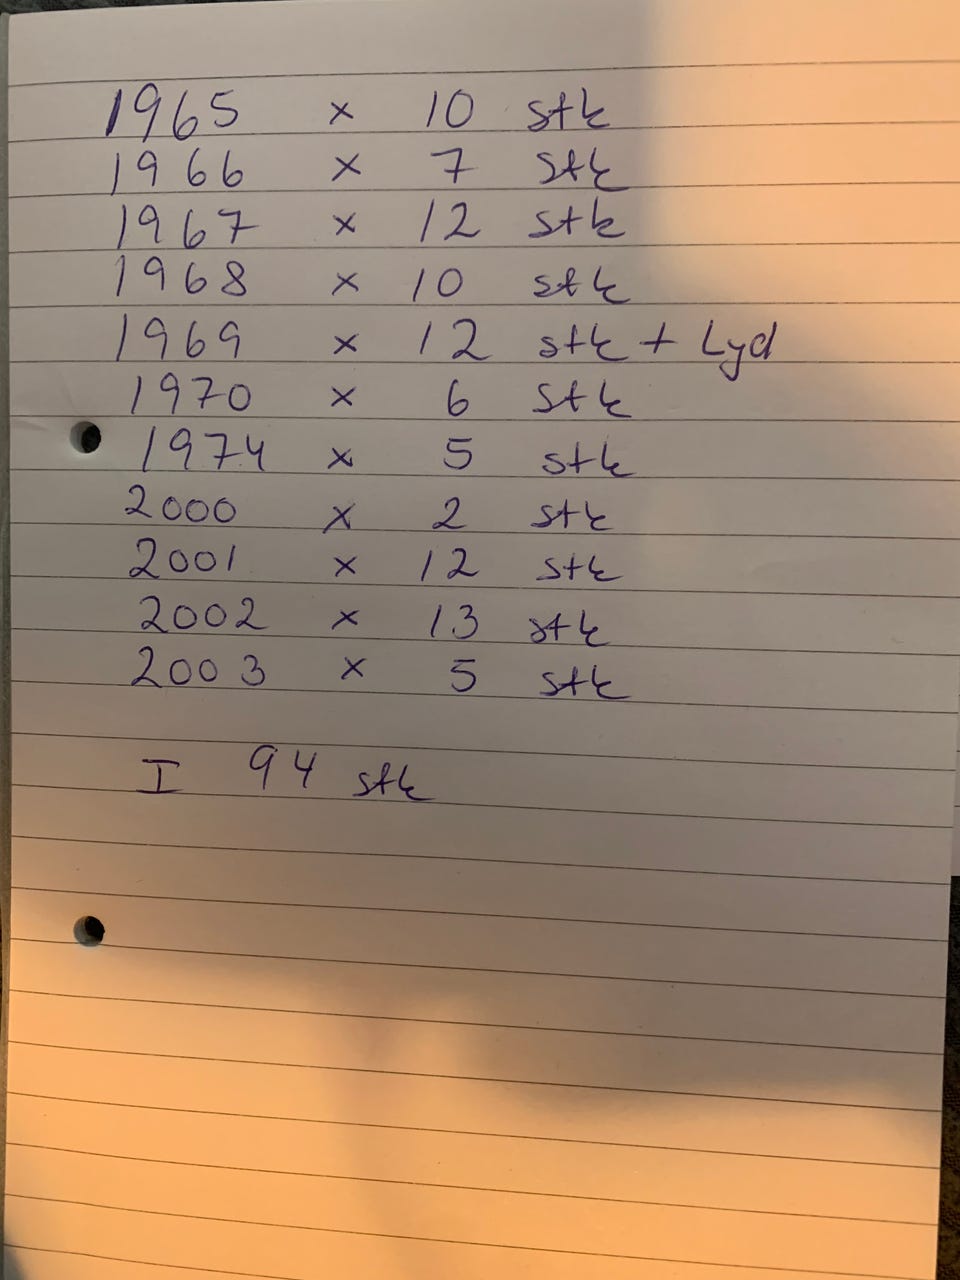 1965 x 10 stk
1966 x 7 stk
1967 x 12 stk
1968 x 10 stk
1969 x 12 stk + Lyd
1970 x 6 stk
1974 x 5 stk
2000 x 2 stk
2001 x 12 stk
2002 x 13 stk
2003 x 5 stk
I 94 stk